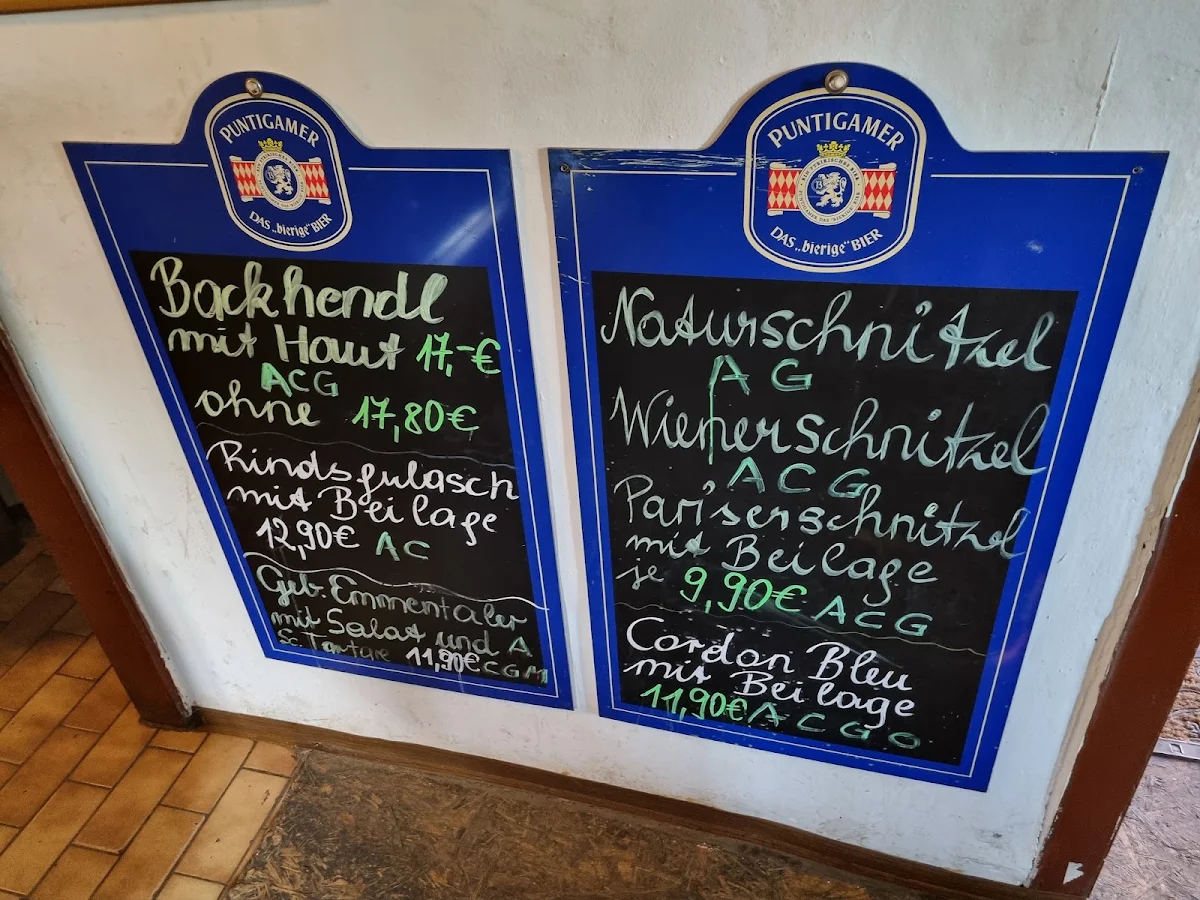 PUNTIGAMER
DAS „bierige“ BIER
Backhendl
mit Haut 17,-€
ACG
ohne 17,80€
Rindsgulasch
mit Beilage
12,90€ AC
Geb. Emmentaler
mit Salat und A
Sc. Tartare 11,90€ CGM
PUNTIGAMER
DAS „bierige“ BIER
Naturschnitzel
A G
Wienerschnitzel
A C G
Pariserschnitzel
mit Beilage
je 9,90€ A C G
Cordon Bleu
mit Beilage
11,90€ A C G O
B